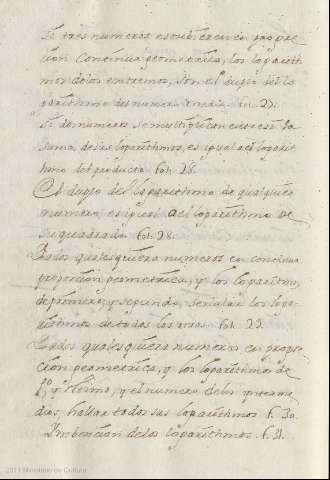 Si tres numeros estubieren en propor
cion continua geometrica, los logarit
mos de los extremos, son el duplo del lo
garithmo del numero medio. fol. 27.
Si dos numeros se multiplican entre si la
suma de sus logarithmos, es igual al logarit
hmo del producto fol. 28.
El duplo del logarithmo de qualquier
numero, es igual al logarithmo de
su quadrado fol. 28.
Dados qualesquiera numeros en continua
proporcion geometrica, y los logaritmos
de primero, y segundo, señalar los loga-
rithmos de todos los mas. fol. 29.
Dados qualesquiera numeros en propor
cion geometrica, y los logarithmos de
1º y ultimo, y el numero de los interme
dios, hallar todos sus logarithmos. f. 30.
Imbencion de los logarithmos. f. 31.
2011 Ministerio de Cultura